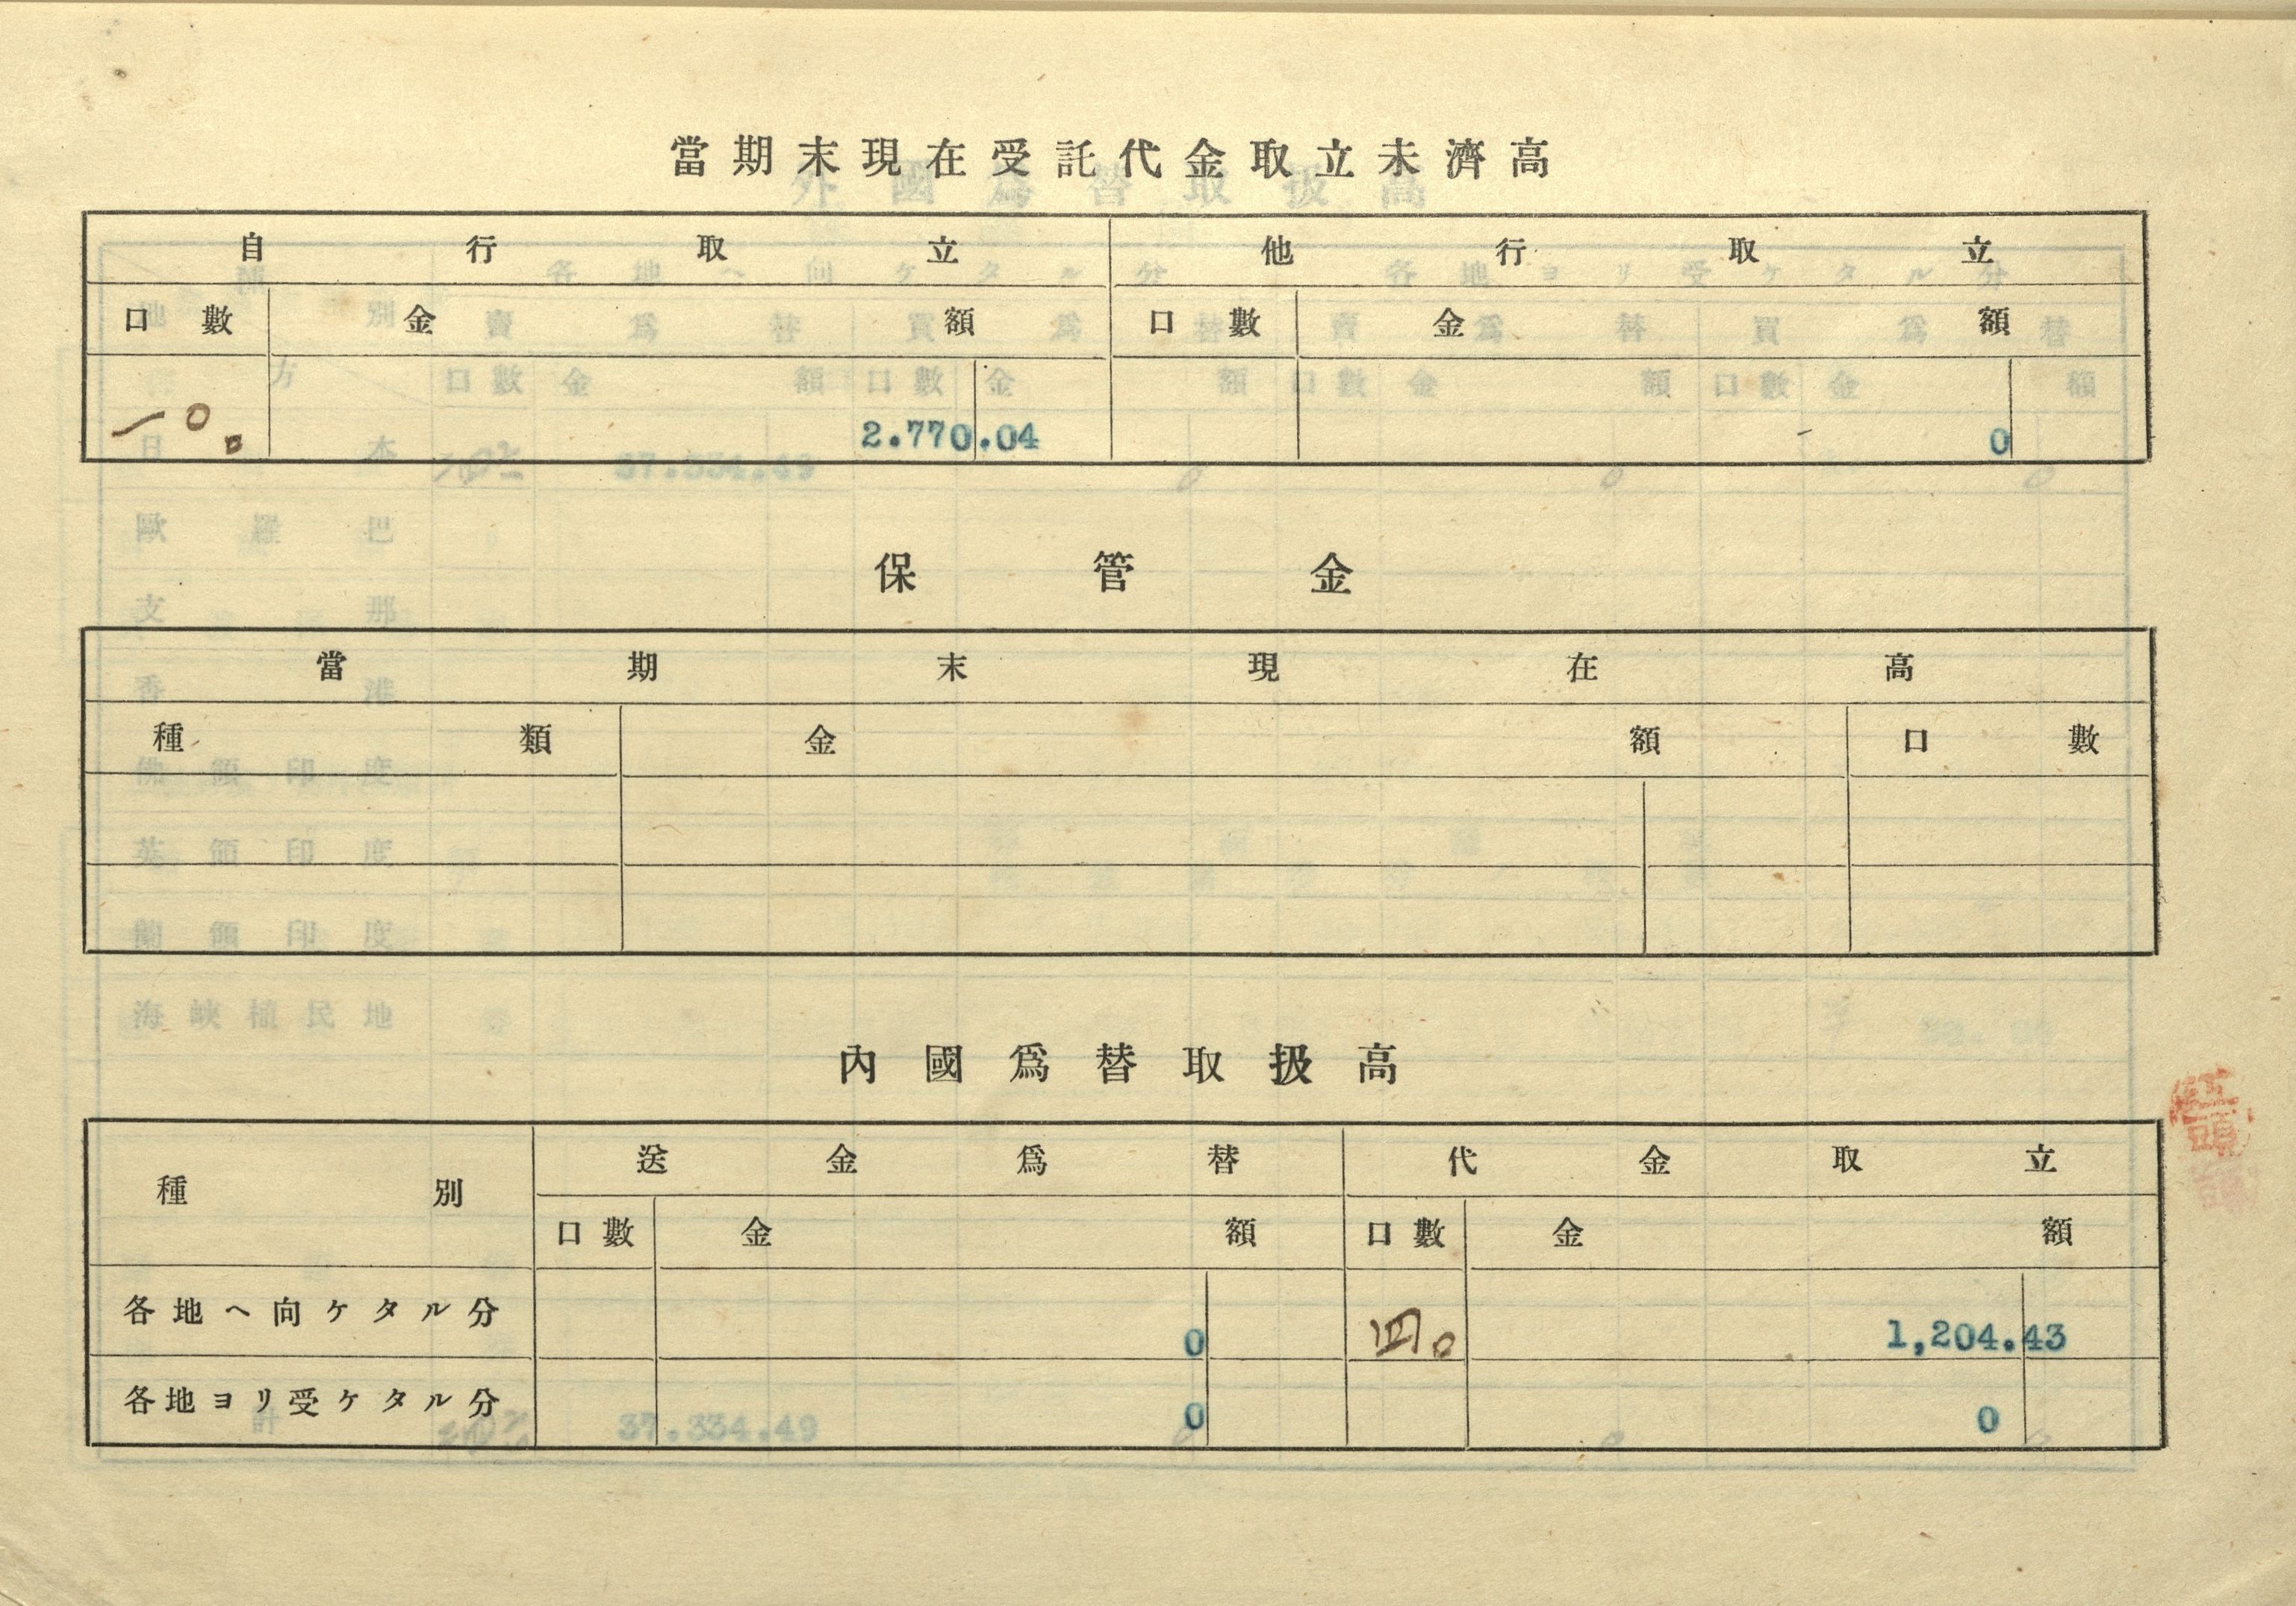 當期末現在受託代金取立未濟高
自行取立 他行取立
口數 金額 口數 金額
一〇。 2.770.04 0
保管金
當期末現在高
種類 金額 口數
內國爲替取扱高
種別 送金爲替 代金取立
口數 金額 口數 金額
各地ヘ向ケタル分 0 四。 1,204.43
各地ヨリ受ケタル分 0 0